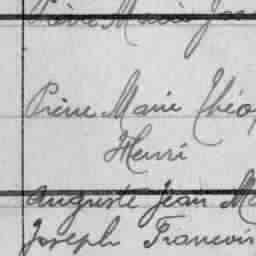 Pierre Marie Jos
Pierre Marie Théo
Henri
Auguste Jean Ma
Joseph Francois